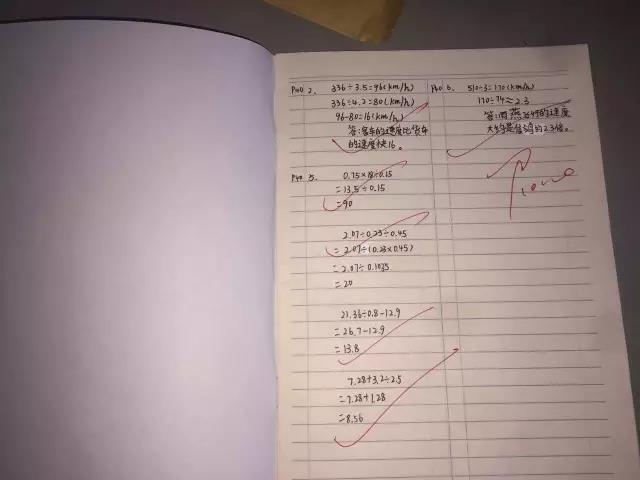 P40 2. 336÷3.5=96(km/h)
336÷4.2=80(km/h)
96-80=16(km/h)
答:客车的速度比货车
的速度快16。
P40 5. 0.75×18÷0.15
=13.5÷0.15
=90
2.07÷0.23÷0.45
=2.07÷(0.23×0.45)
=2.07÷0.1035
=20
21.36÷0.8-12.9
=26.7-12.9
=13.8
7.28+3.2÷2.5
=7.28+1.28
=8.56
P40 6. 510÷3=170(km/h)
170÷74≈2.3
答:雨燕飞行的速度
大约是信鸽的2.3倍。